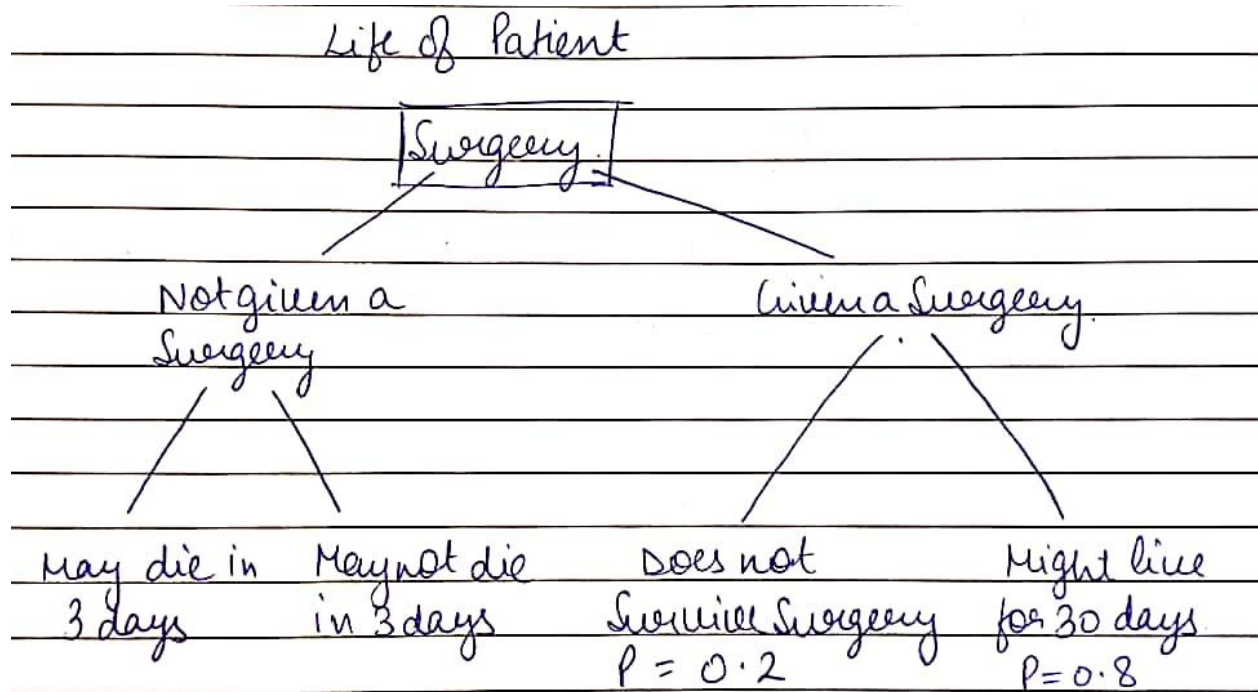 Life of Patient
Surgery.
Not given a
Surgery
Given a Surgery.
May die in
3 days
May not die
in 3 days
Does not
Survive Surgery
P = 0.2
Might live
for 30 days
P = 0.8